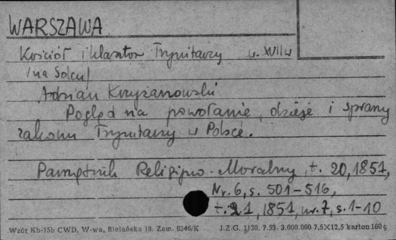 WARSZAWA
Kościół i klasztor Trynitarzy w. XVII w
(na Solcu)
Adrian Krzyżanowski
Pogląd na powołanie, dzieje i sprawy
zakonu Trynitarzy w Polsce.
Pamiętnik Religijno-Moralny, t. 20, 1851,
Nr. 6, s. 501-516,
t. 21, 1851, nr. 7, s. 1-10
Wzór Kb-15b CWD, W-wa, Bielańska 18. Zam. 8246/K J.Z.G. 1133. 7.53. 3.000.000 7,5×12,5 karton 160 g